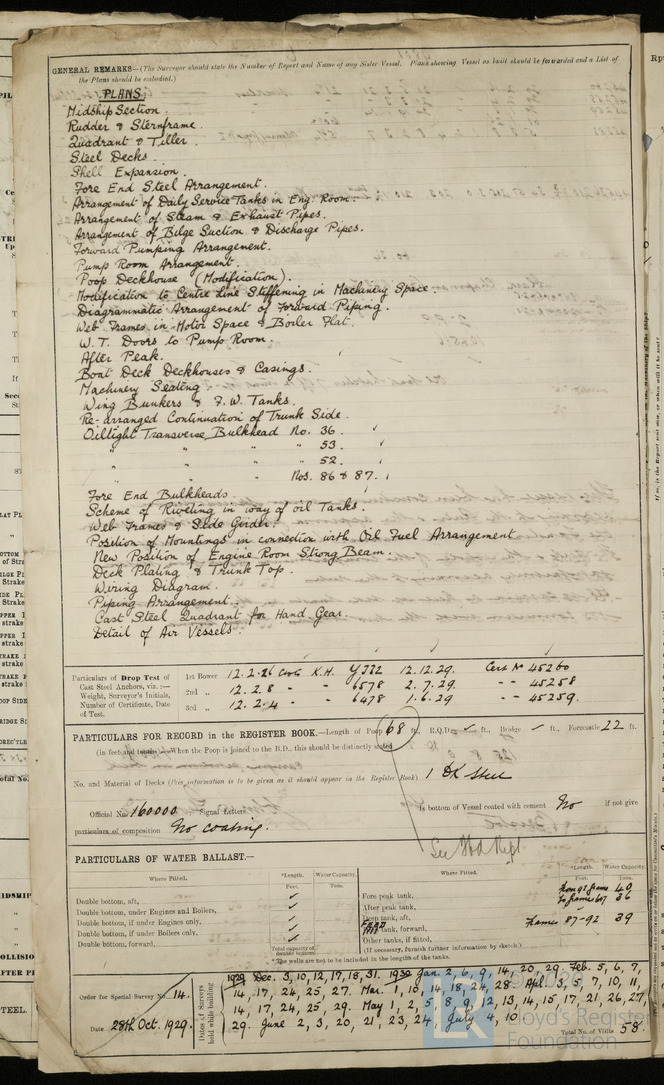 GENERAL REMARKS—(The Surveyor should state the Number of Report and Name of any Sister Vessel. Plans showing Vessel as built should be forwarded and a List of
the Plans should be embodied.)
PLANS.
Midship Section.
Rudder & Sternframe.
Quadrant & Tiller.
Steel Decks.
Shell Expansion.
Fore End Steel Arrangement.
Arrangement of Daily Service Tanks in Eng. Room.
Arrangement of Steam & Exhaust Pipes.
Arrangement of Bilge Suction & Discharge Pipes.
Forward Pumping Arrangement.
Pump Room Arrangement.
Poop Deckhouse (Modification).
Modification to Centre Line Stiffening in Machinery Space.
Diagrammatic Arrangement of Forward Piping.
Web Frames in Motor Space & Boiler Flat.
W.T. Doors to Pump Room.
After Peak.
Boat Deck Deckhouses & Casings.
Machinery Seating.
Wing Bunkers & F.W. Tanks.
Re-arranged Continuation of Trunk Side.
Oiltight Transverse Bulkhead No. 36.
" " " " 53.
" " " " 52.
" " " Nos. 86 & 87.
Fore End Bulkheads.
Scheme of Riveting in way of oil Tanks.
Web Frames & Side Girder.
Position of Mountings in connection with Oil Fuel Arrangement
New Position of Engine Room Strong Beam.
Deck Plating & Trunk Top.
Wiring Diagram.
Piping Arrangement.
Cast Steel Quadrant for Hand Gear.
Detail of Air Vessels.
Particulars of Drop Test of Cast Steel Anchors, viz.:— Weight, Surveyor's Initials, Number of Certificate, Date of Test.
1st Bower 12.2.26 K.H. 12.12.29. Cert No 45260
2nd " 12.2.8 - - 6578 2.7.29. - - 45258
3rd " 12.2.4 - - 6478 1.6.29 - - 45259.
PARTICULARS FOR RECORD in the REGISTER BOOK.—Length of Poop 68 ft., R.Q.D. ✓ ft., Bridge ✓ ft., Forecastle 22 ft.
(in feet and tenths).—When the Poop is joined to the B.D., this should be distinctly stated
No. and Material of Decks (This information is to be given as it should appear in the Register Book) 1 DK Steel
Official No. 160000 Signal Letters Is bottom of Vessel coated with cement No if not give
particulars of composition No coating.
PARTICULARS OF WATER BALLAST.—
Where Fitted. *Length. Feet. Water Capacity. Tons. Where Fitted. *Length. Feet. Water Capacity. Tons.
Double bottom, aft, ✓ Fore peak tank, 40
Double bottom, under Engines and Boilers, ✓ After peak tank, 36
Double bottom, if under Engines only, ✓ Deep tank, aft, frames 87-92 39
Double bottom, if under Boilers only, ✓ tank, forward,
Double bottom, forward, ✓ Other tanks, if fitted,
Total capacity of double bottoms (If necessary, furnish further information by sketch.)
* The wells are not to be included in the lengths of the tanks.
Order for Special Survey No. 14.
Date 28th Oct. 1929.
Dates of Surveys held while building
1929 Dec. 3, 10, 12, 17, 18, 31. 1930 Jan. 2, 6, 9, 14, 20, 29. Feb. 5, 6, 7,
14, 17, 24, 25, 27. Mar. 1, 10, 14, 18, 24, 28. Apl. 3, 5, 7, 10, 11,
14, 17, 24, 25, 29. May 1, 2, 5, 8, 9, 12, 13, 14, 15, 17, 21, 26, 27,
29. June 2, 3, 20, 21, 23, 24, July 4, 10
Total No. of Visits 58.
Lloyd's Register
Foundation